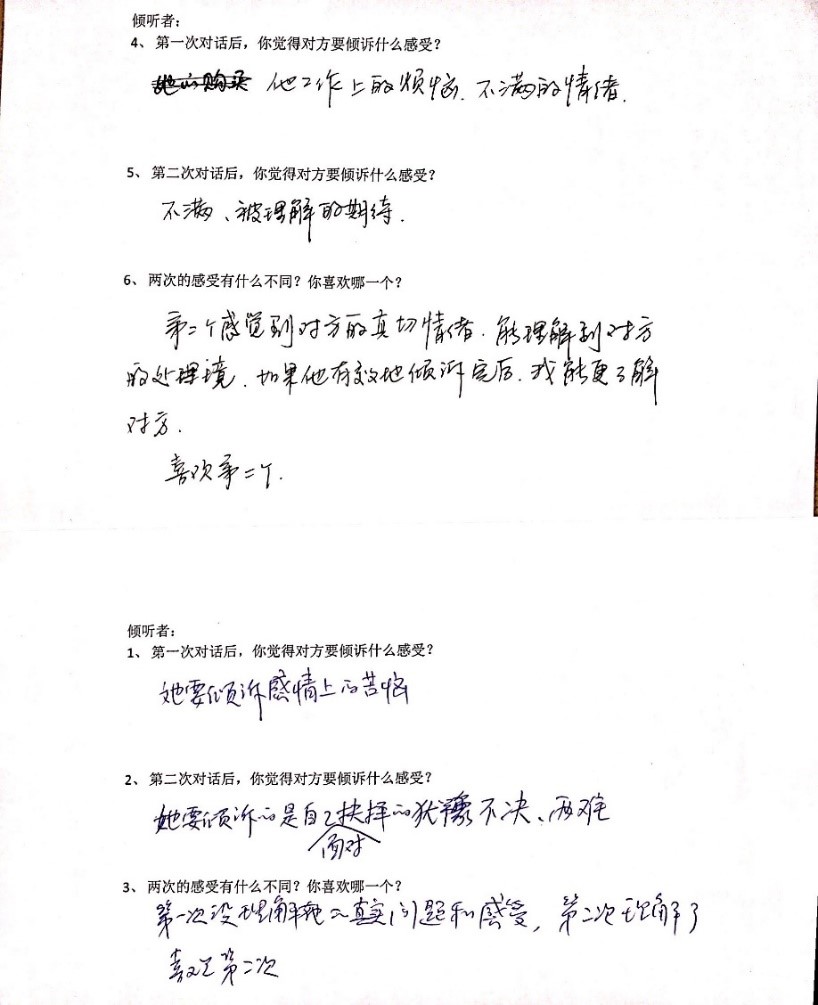 倾听者：
4、 第一次对话后，你觉得对方要倾诉什么感受？
他工作上的烦恼、不满的情绪.
5、 第二次对话后，你觉得对方要倾诉什么感受？
不满、被理解的期待.
6、 两次的感受有什么不同？你喜欢哪一个？
第二个感觉到对方的真切情绪. 能理解到对方
的处理境. 如果他有效地倾诉完后. 我能更了解
对方.
喜欢第二个.
倾听者：
1、 第一次对话后，你觉得对方要倾诉什么感受？
她要倾诉感情上的苦恼
2、 第二次对话后，你觉得对方要倾诉什么感受？
她要倾诉的是自己面对抉择的犹豫不决、两难
3、 两次的感受有什么不同？你喜欢哪一个？
第一次没理解她的真实问题和感受，第二次理解了
喜欢第二次